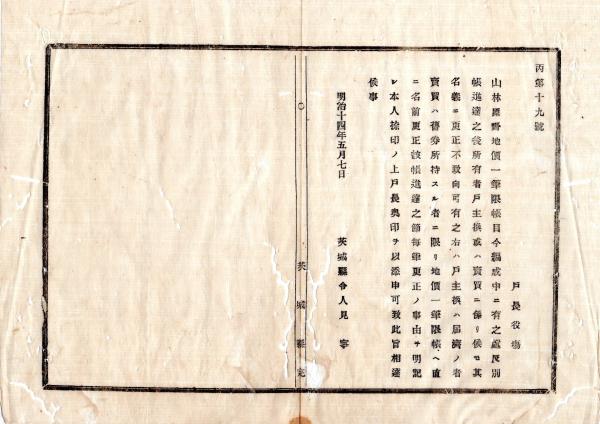 丙第十九號
戸長役場
山林原野地價一筆限帳目今編成中ニ有之處反別
帳進達之後所有者戸主換或ハ賣買ニ係リ候モ其
名義ニ更正不致向可有之右ハ戸主換ハ届濟ノ者
賣買ハ舊券所持スル者ニ限リ地價一筆限帳ヘ直
ニ名前更正該帳進達之節毎筆更正ノ事由ヲ明記
シ本人捺印ノ上戸長奥印ヲ以添申可致此旨相達
候事
明治十四年五月七日
茨城縣令人見寧
茨城縣